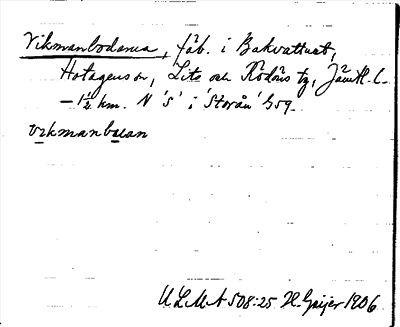 Vikmanbodarna, fäb. i Bakvattnet,
Hotagens sn, Lits och Rödöns tg, Jämtl. l.
– 1½ km. N 'S' i 'Storån' G59.
vikmanbuan
ULMA 508:25 H. Geijer 1906